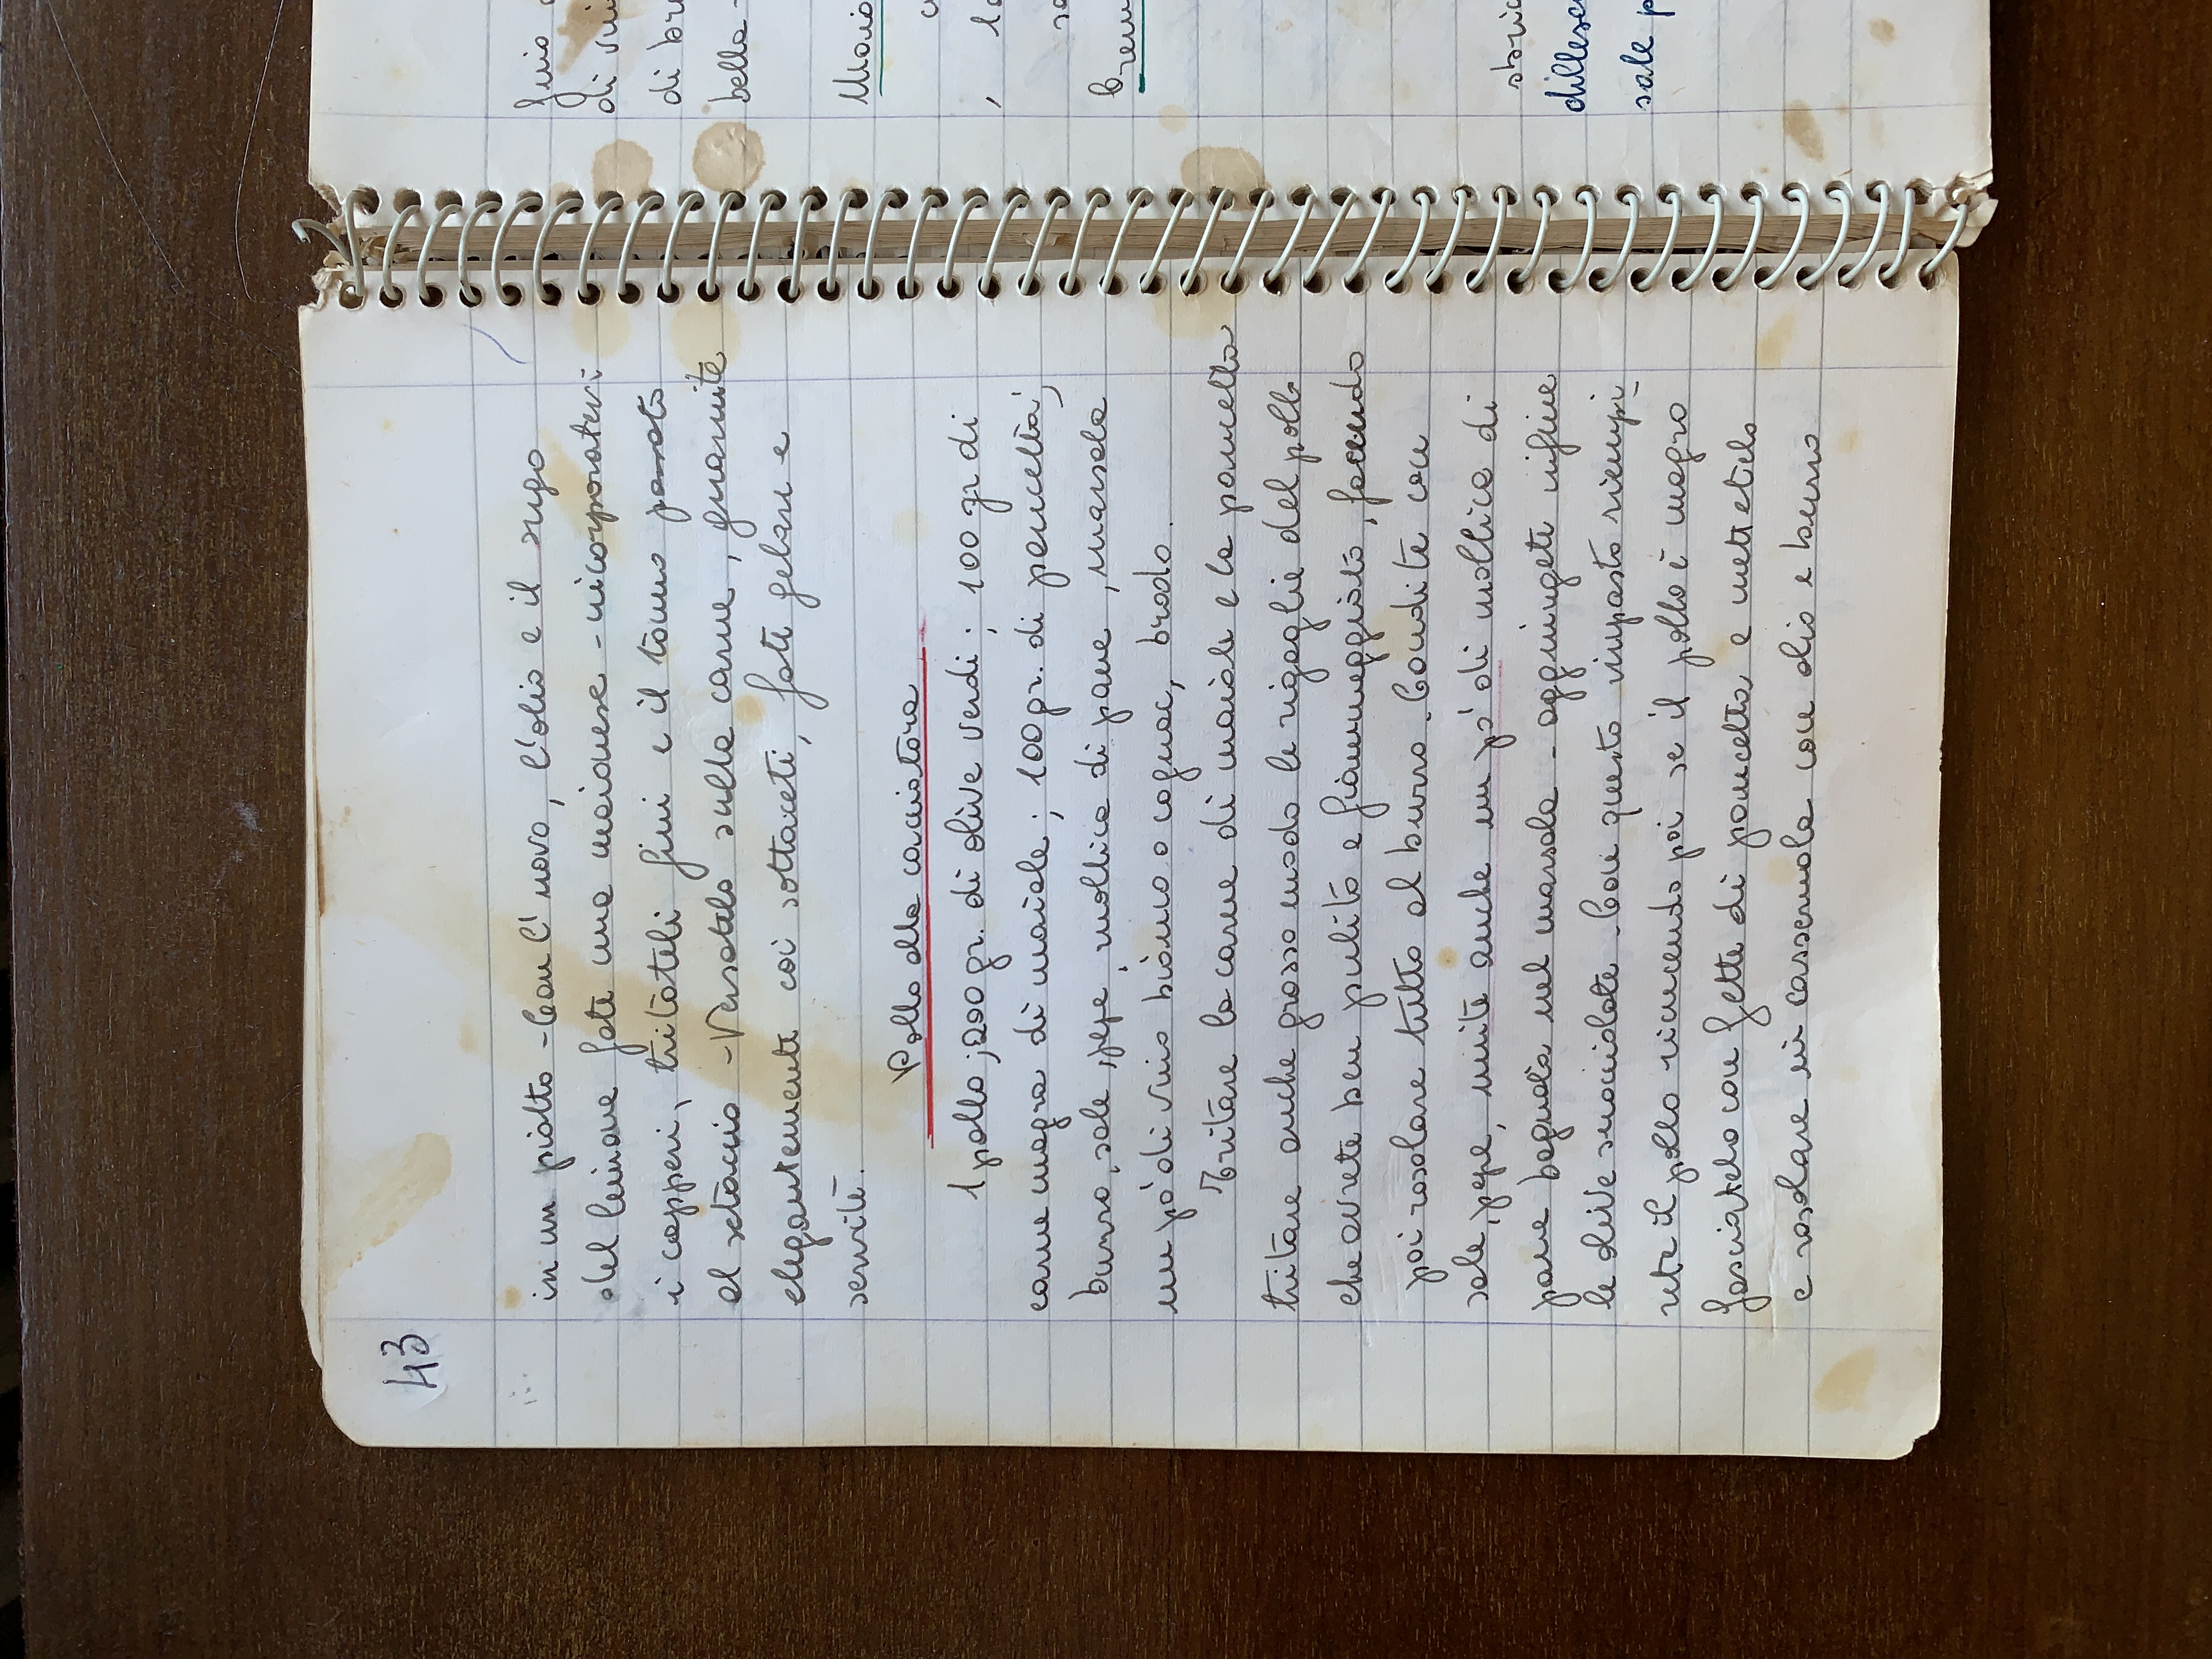 43
in un piatto - Con l'uovo, l'olio e il sugo
del limone fate una maionese - incorporatevi
i capperi, tritateli fini e il tonno passato
al setaccio - Versatelo sulla carne, guarnite
elegantemente coi sottaceti, fate gelare e
servite.
Pollo alla cacciatora
1 pollo; 200 gr. di olive verdi; 100 gr di
carne magra di maiale; 100 gr. di pancetta;
burro, sale, pepe, mollica di pane, marsala
un pò di vino bianco o cognac, brodo.
Tritare la carne di maiale e la pancetta
tritare anche grosso modo le rigaglie del pollo
che avrete ben pulito e fiammeggiato, facendo
poi rosolare tutto al burro. Condite con
sale, pepe, unite anche un pò di mollica di
pane bagnata nel marsala - aggiungete infine
le olive snocciolate. Con questo impasto riempi_
rete il pollo ricucendo poi se il pollo è magro
fasciatelo con fette di pancetta e mettetelo
a rosolare in casseruola con olio e burro
di
di
bella -
sale